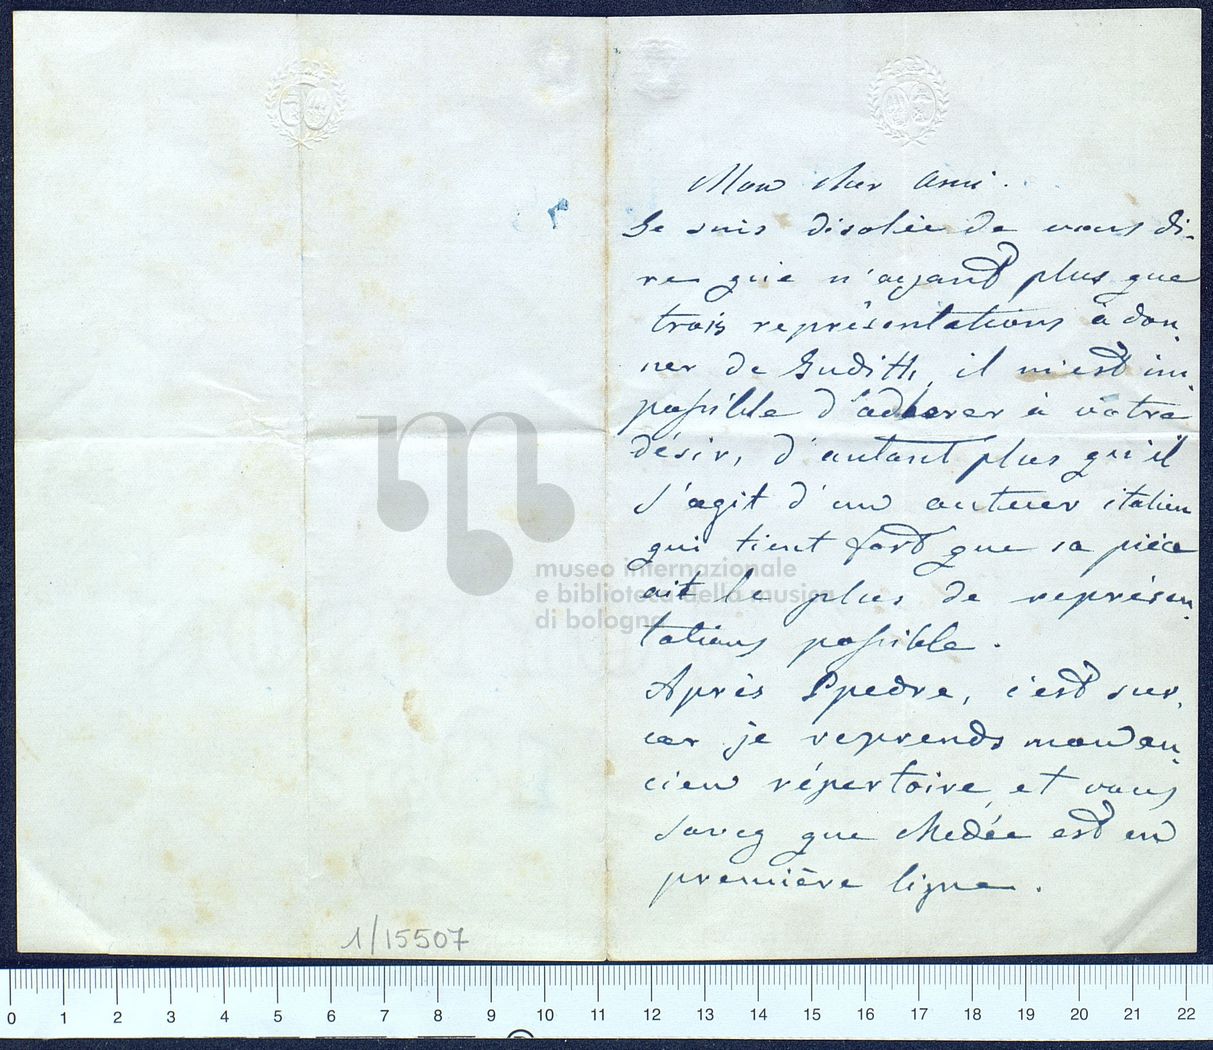 Mon cher Ami.
Je suis désolée de vous di-
re que n'ayant plus que
trois représentations à don-
ner de Judith, il m'est im-
possible d'adherer à votre
désir, d'autant plus qu'il
s'agit d'un auteur italien
qui tient fort que sa pièce
ait le plus de représen-
tations possible.
Après Phedre, c'est sur,
car je reprends mon an-
cien répertoire, et vous
savez que Medée est en
première ligne.
museo internazionale
e biblioteca della musica
di bologna
1/15507
0 1 2 3 4 5 6 7 8 9 10 11 12 13 14 15 16 17 18 19 20 21 22